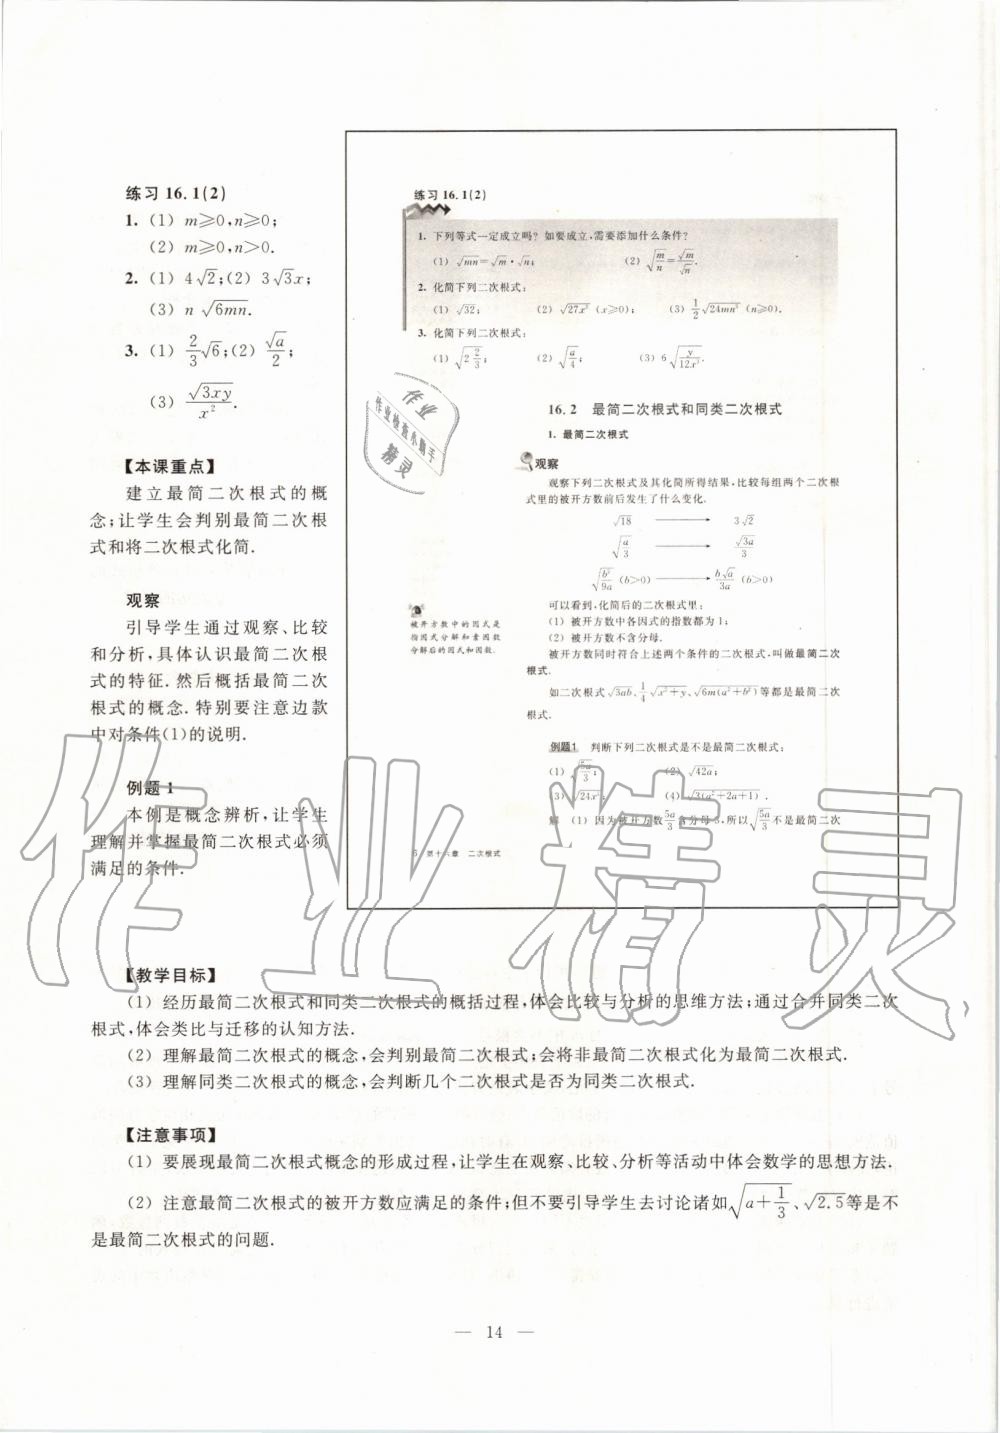 练习 16.1(2)
1. (1) m≥0,n≥0;
(2) m≥0,n>0.
2. (1) 4√2;(2) 3√3x;
(3) n √6mn.
3. (1) 2/3√6;(2) √a/2;
(3) √3xy/x².
【本课重点】
建立最简二次根式的概
念;让学生会判别最简二次根
式和将二次根式化简.
观察
引导学生通过观察、比较
和分析,具体认识最简二次根
式的特征.然后概括最简二次
根式的概念.特别要注意边款
中对条件(1)的说明.
例题 1
本例是概念辨析,让学生
理解并掌握最简二次根式必须
满足的条件.
练习 16.1(2)
1. 下列等式一定成立吗? 如要成立,需要添加什么条件?
(1) √mn=√m·√n; (2) √(m/n)=√m/√n.
2. 化简下列二次根式:
(1) √32; (2) √27x² (x≥0); (3) 1/2√24mn² (n≥0).
3. 化简下列二次根式:
(1) √(2 2/3); (2) √(a/4); (3) 6√(y/12x³).
16.2 最简二次根式和同类二次根式
1. 最简二次根式
观察
观察下列二次根式及其化简所得结果,比较每组两个二次根
式里的被开方数前后发生了什么变化.
√18 → 3√2
√(a/3) → √3a/3
√(b²/9a) (b>0) → b√a/3a (b>0)
可以看到,化简后的二次根式里:
(1) 被开方数中各因式的指数都为1;
(2) 被开方数不含分母.
被开方数同时符合上述两个条件的二次根式,叫做最简二次
根式.
如二次根式√3ab、1/4√x²+y、√6m(a²+b²)等都是最简二次
根式.
被开方数中的因式是
指因式分解和素因数
分解后的因式和因数.
例题1 判断下列二次根式是不是最简二次根式:
(1) √(5a/3); (2) √42a;
(3) √24x³; (4) √3(a²+2a+1) .
解 (1) 因为被开方数5a/3含分母3,所以√(5a/3)不是最简二次
6 第十六章 二次根式
作业
作业检查小助手
精灵
作业精灵
【教学目标】
(1) 经历最简二次根式和同类二次根式的概括过程,体会比较与分析的思维方法;通过合并同类二次
根式,体会类比与迁移的认知方法.
(2) 理解最简二次根式的概念,会判别最简二次根式;会将非最简二次根式化为最简二次根式.
(3) 理解同类二次根式的概念,会判断几个二次根式是否为同类二次根式.
【注意事项】
(1) 要展现最简二次根式概念的形成过程,让学生在观察、比较、分析等活动中体会数学的思想方法.
(2) 注意最简二次根式的被开方数应满足的条件;但不要引导学生去讨论诸如√(a+1/3)、√2.5等是不
是最简二次根式的问题.
— 14 —